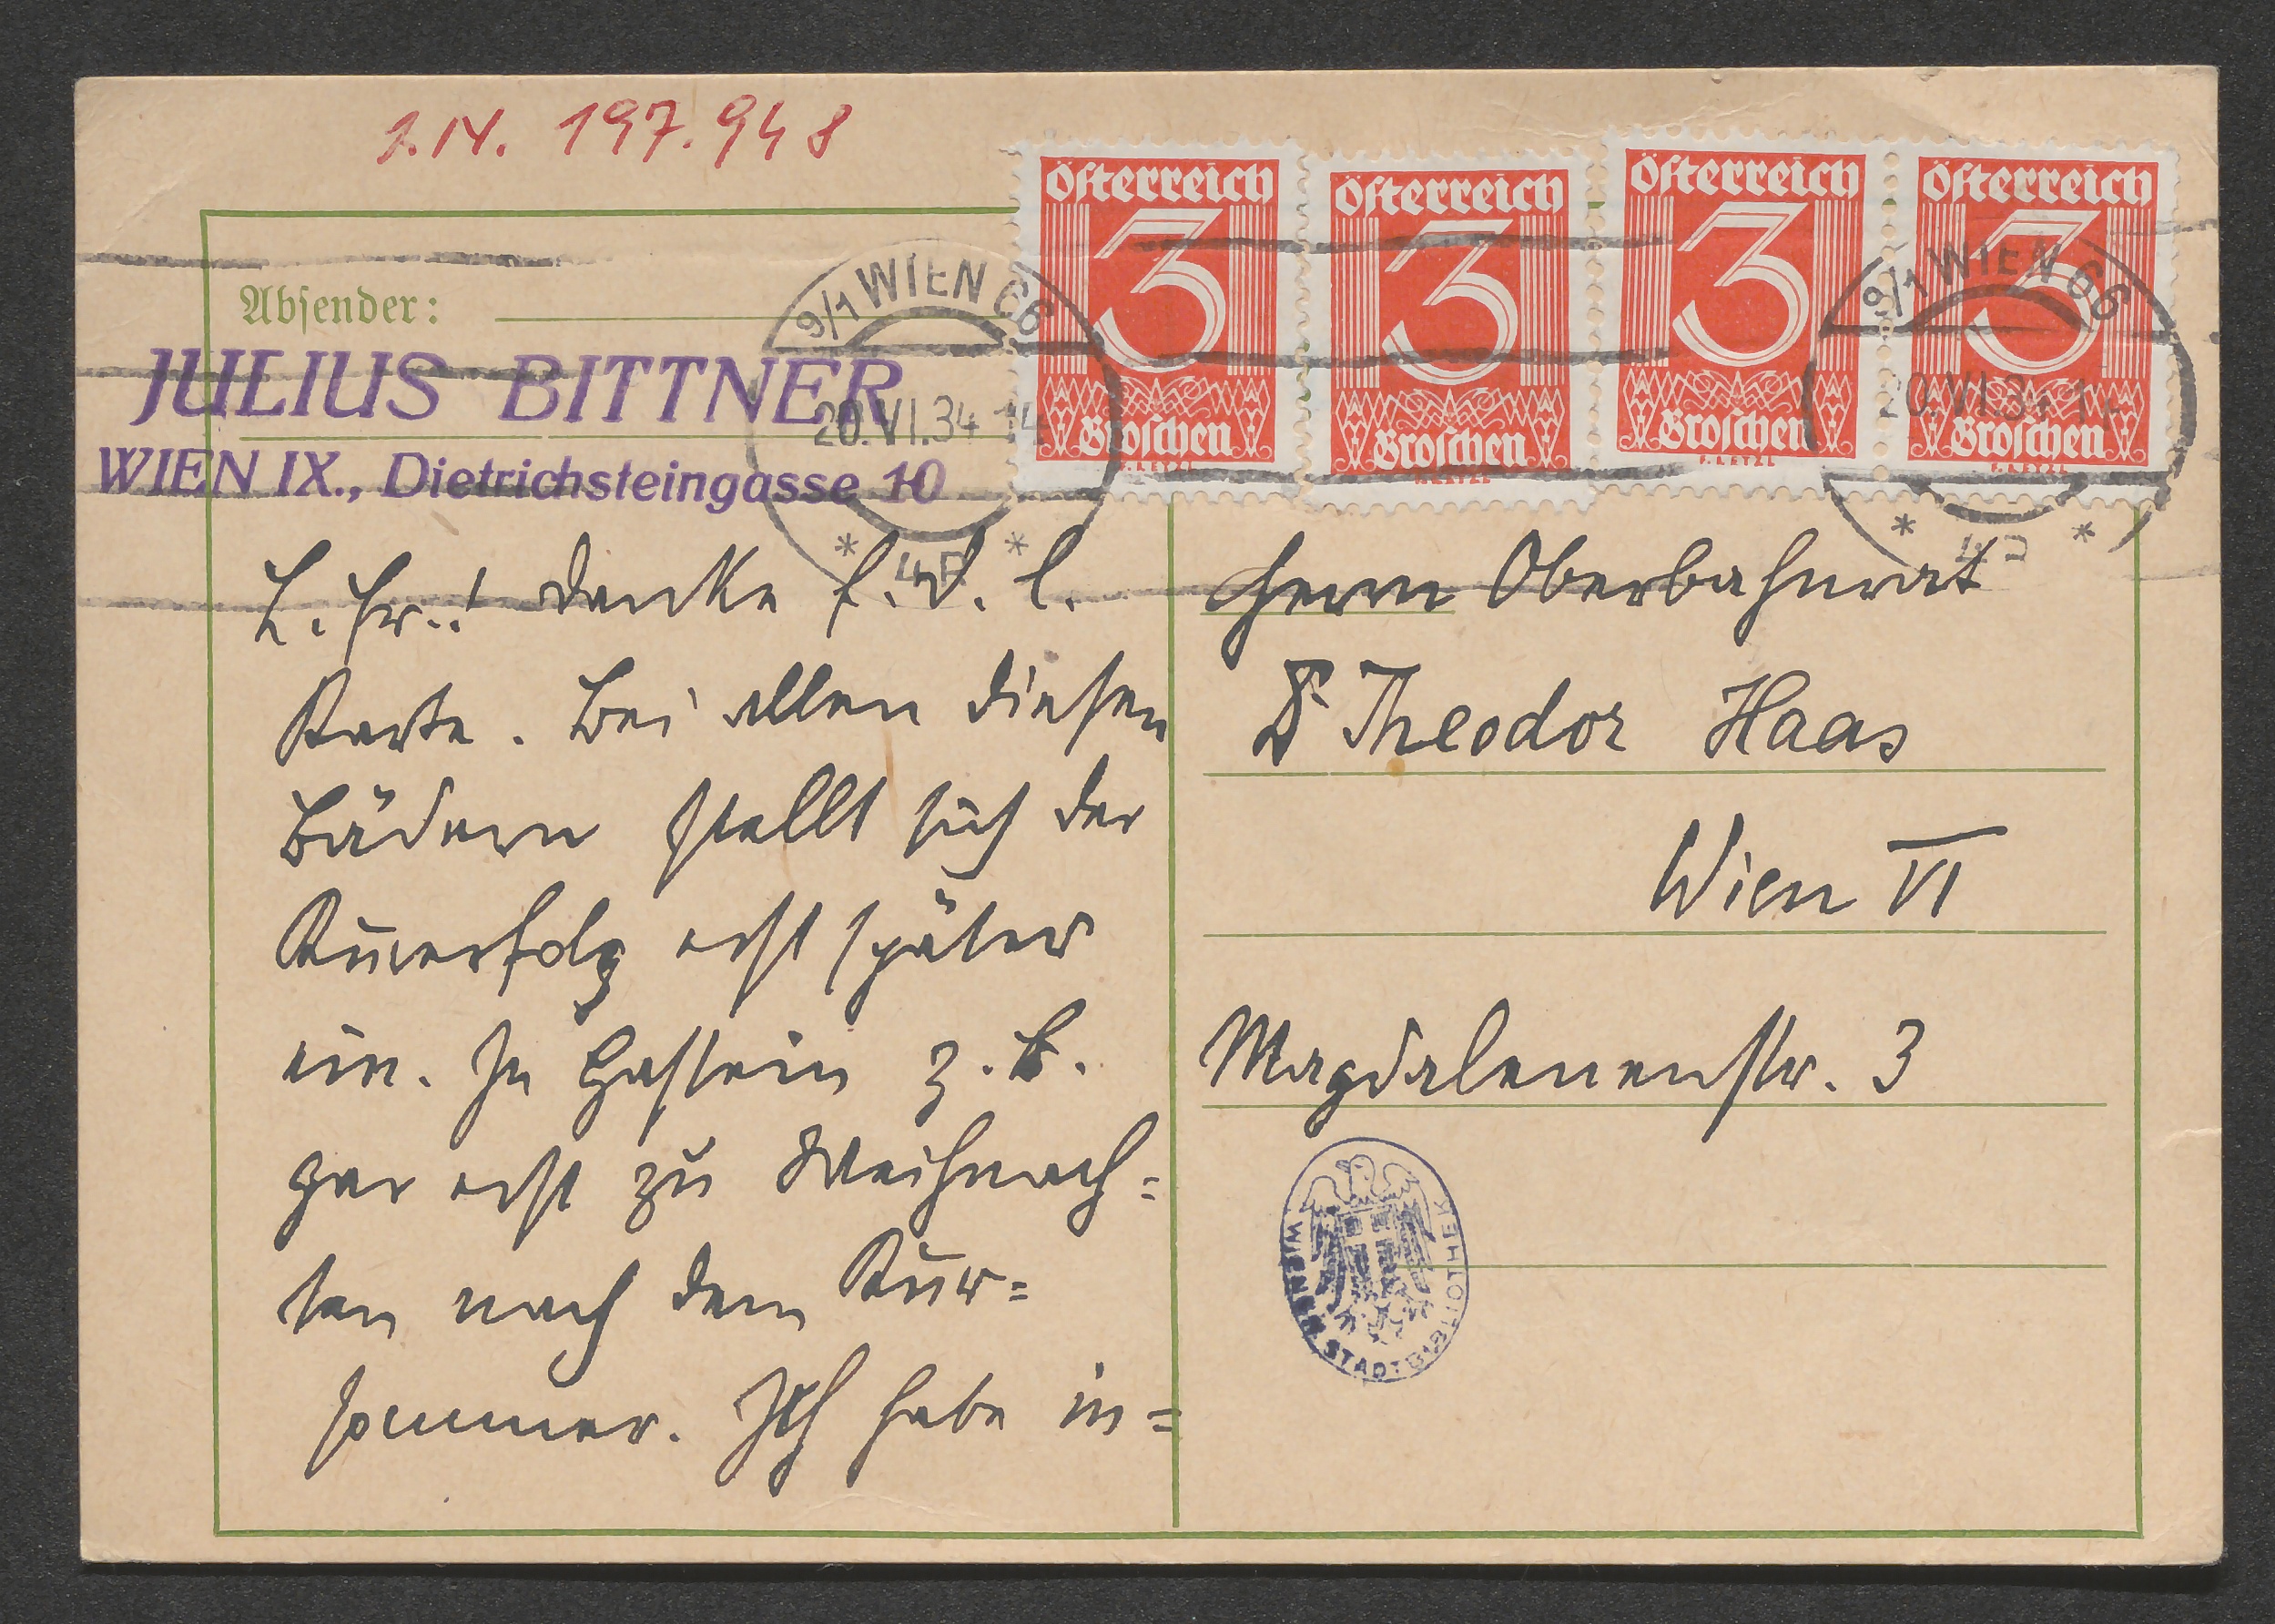 I.N. 197.948
Österreich
3
Groschen
F. RETZL
Österreich
3
Groschen
Österreich
3
Groschen
F. RETZL
Österreich
3
Groschen
F. RETZL
Absender:
JULIUS BITTNER
WIEN IX., Dietrichsteingasse 10
9/1 WIEN 66
20.VI.34 14
9/1 WIEN 66
20.VI.34
L. Fr.! Danke f. d. l.
Karte. Bei allen diesen
Bädern stellt sich der
Kurerfolg erst später
ein. In Gastein z. B.
gar erst zu Weihnach=
ten nach dem Kur=
sommer. Ich habe in=
Herrn Oberbahnrat
Dr Theodor Haas
Wien VI
Magdalenenstr. 3
WIENER STADTBIBLIOTHEK